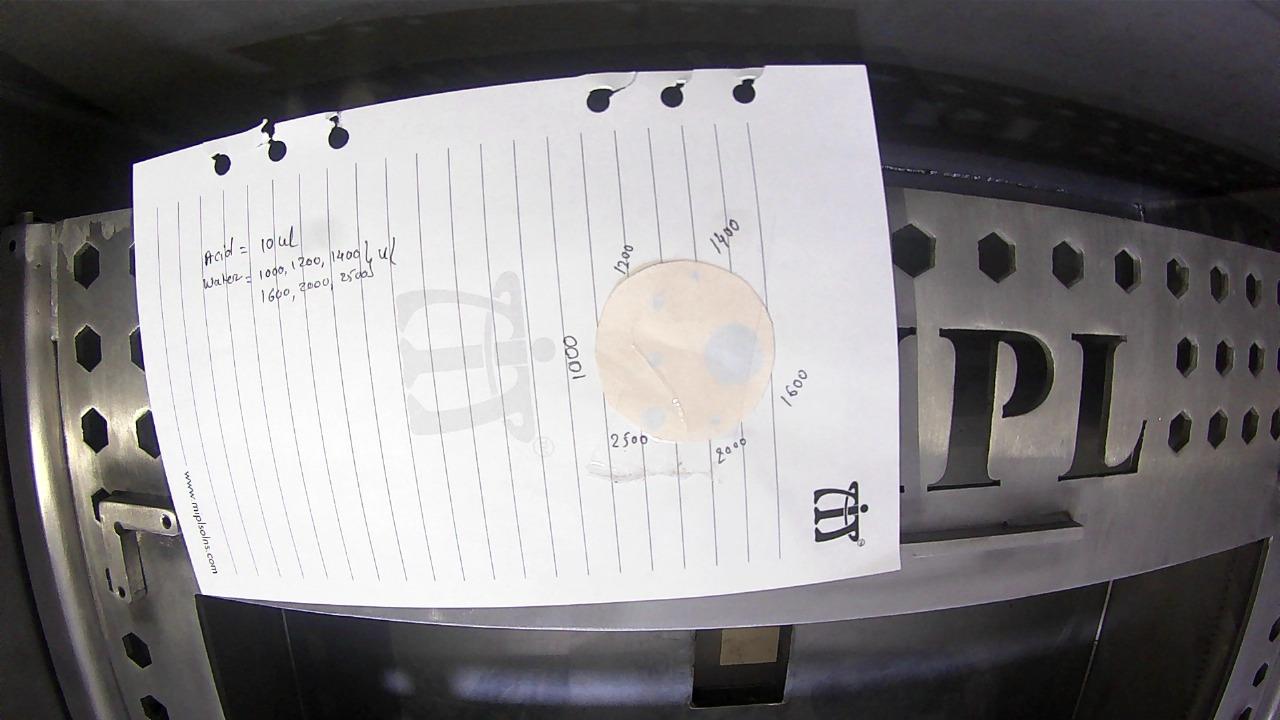 Acid = 10 ul
Water = 1000, 1200, 1400 } ul
1600, 2000, 2500
1200
1400
1000
1600
2500
2000
www.miplsolns.com
®
®
IPL